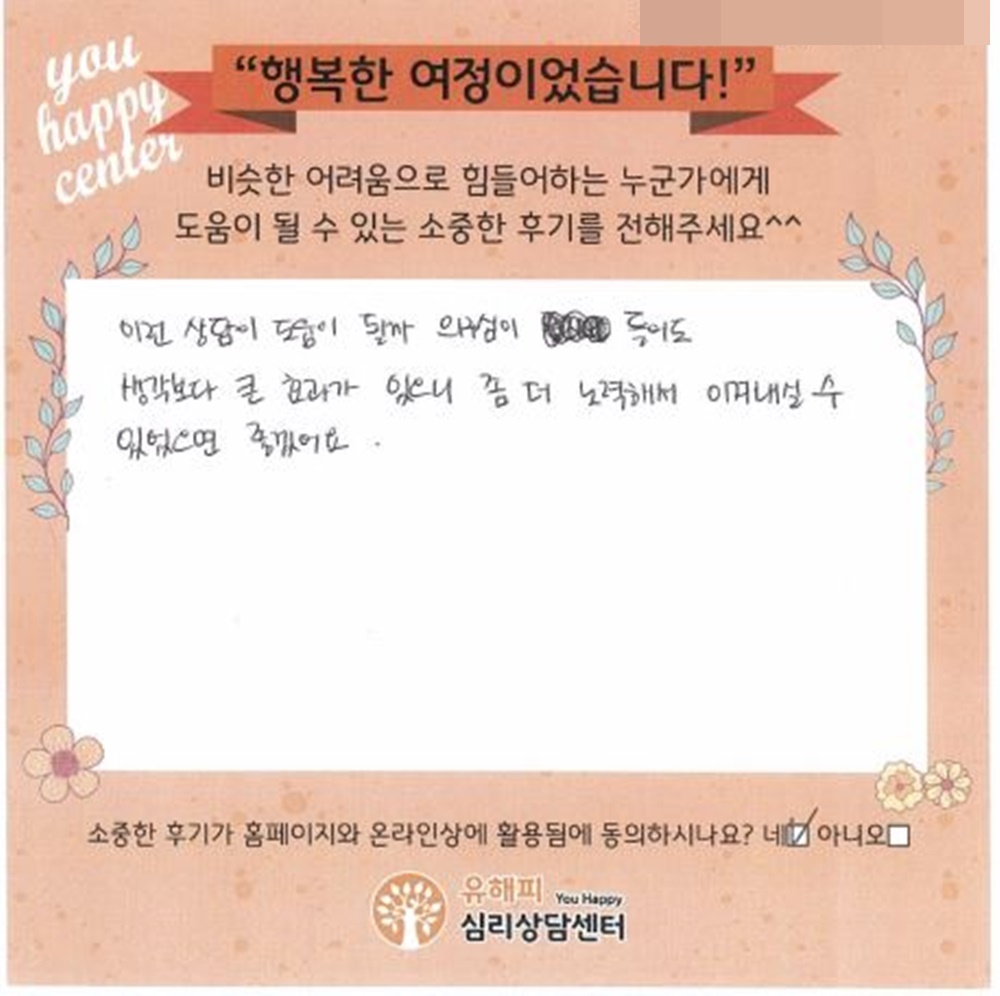 you
happy
center
“행복한 여정이었습니다!”
비슷한 어려움으로 힘들어하는 누군가에게
도움이 될 수 있는 소중한 후기를 전해주세요^^
이런 상담이 도움이 될까 의구심이 들어도
생각보다 큰 효과가 있으니 좀 더 노력해서 이겨내실 수
있었으면 좋겠어요.
소중한 후기가 홈페이지와 온라인상에 활용됨에 동의하시나요? 네☑ 아니오☐
유해피 You Happy
심리상담센터